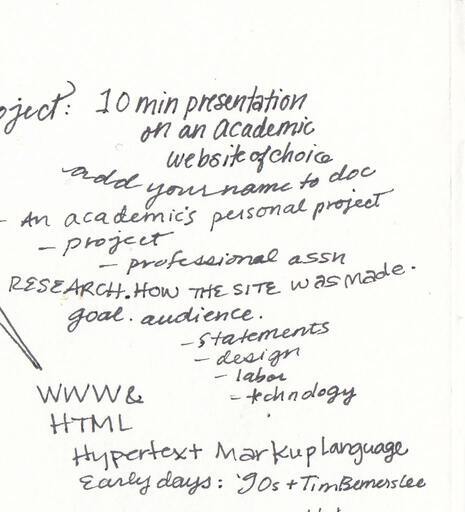 oject: 10 min presentation
on an academic
website of choice
add your name to doc
- An academic's personal project
- project
- professional assn
RESEARCH. HOW THE SITE WAS MADE.
goal. audience.
- statements
- design
- labor
- technology
WWW &
HTML
Hypertext Markup Language
Early days: '90s + Tim Berners Lee